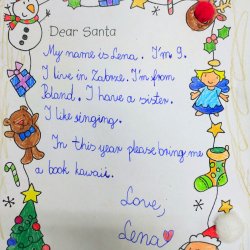 Dear Santa
My name is Lena. I'm 9.
I live in Zabrze. I'm from
Poland. I have a sister.
I like singing.
In this year please bring me
a book kawaii.
Love,
Lena